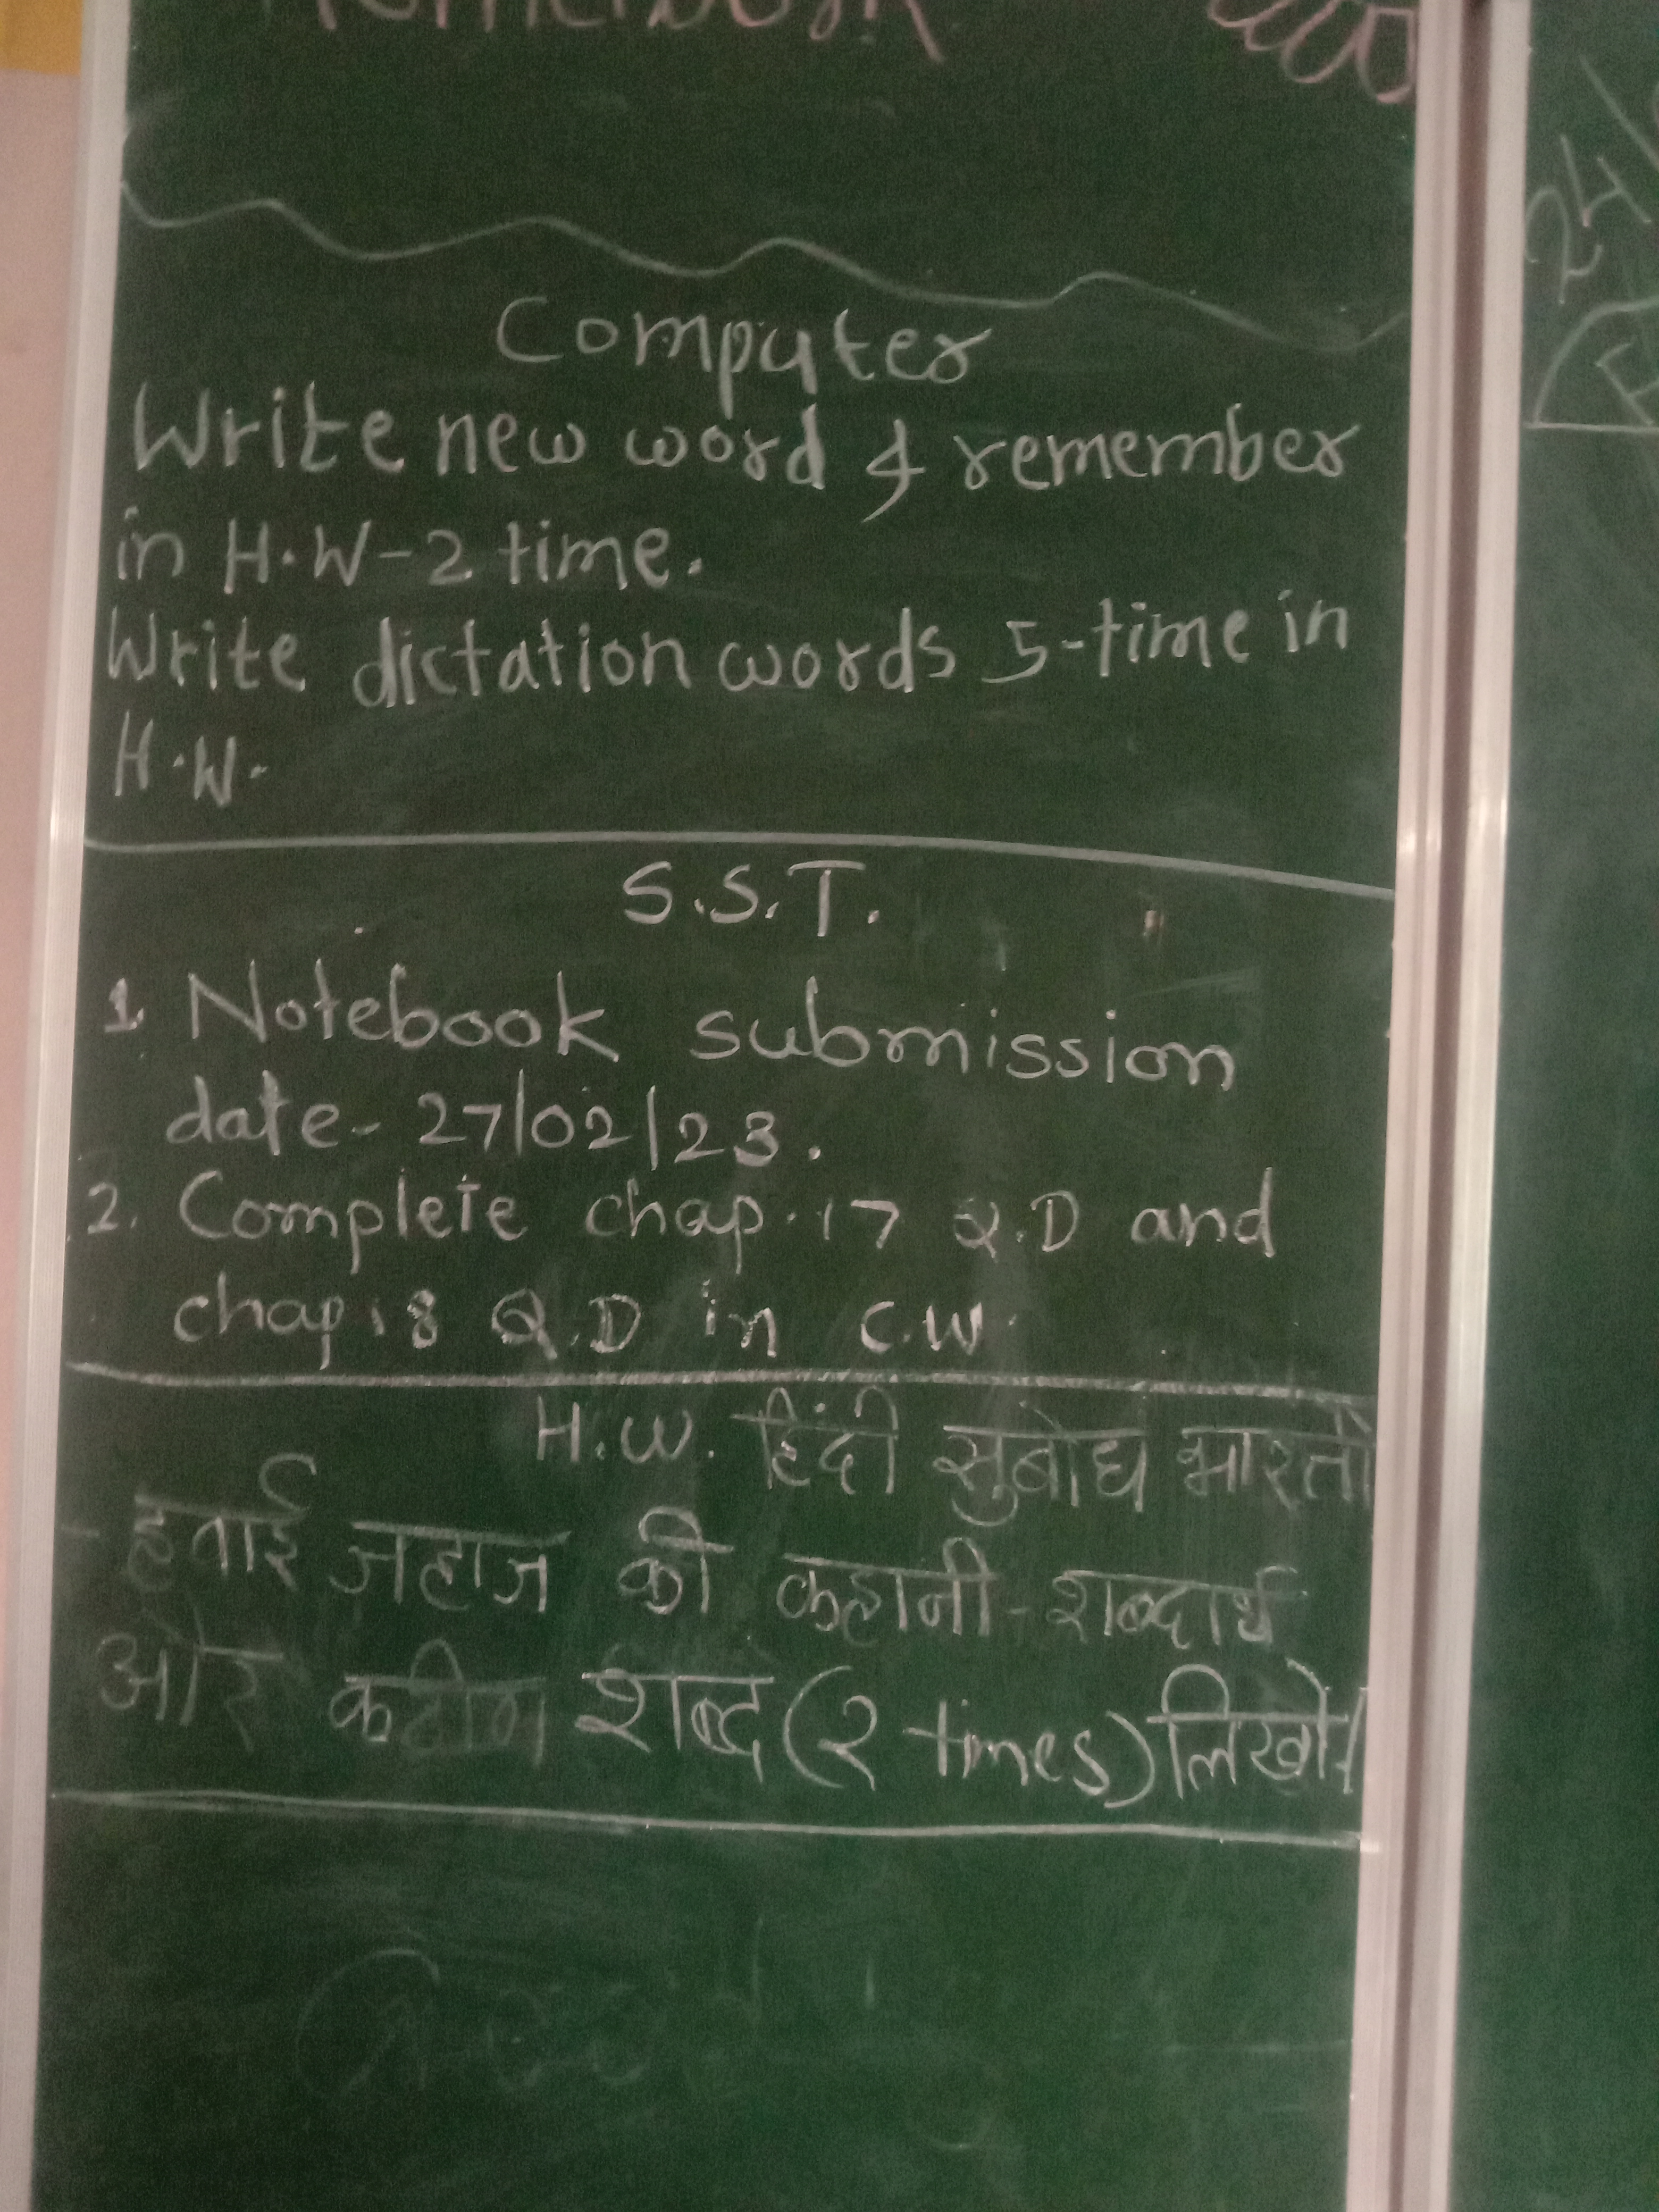 Homework
Computer
Write new word & remember
in H.W-2 time.
Write dictation words 5-time in
H.W.
S.S.T.
1. Notebook submission
date- 27/02/23.
2. Complete chap.17 Q.D and
chap 18 Q.D in C.W.
H.W. हिंदी सुबोध भारती
- हवाई जहाज की कहानी - शब्दार्थ
और कठीन शब्द (2 times) लिखो।
24/